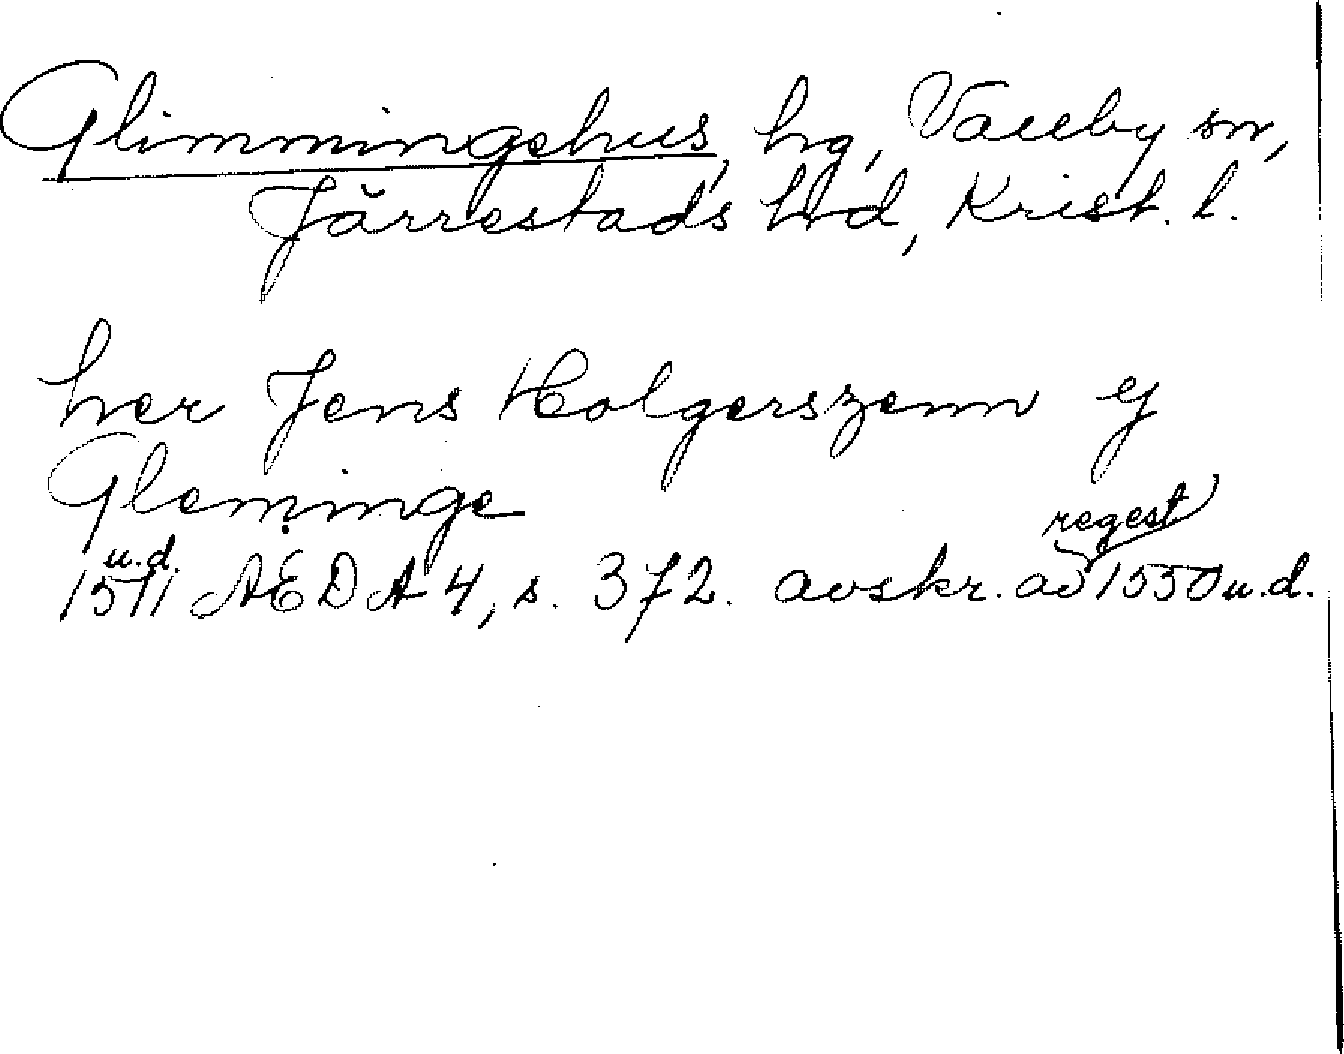 Glimmingehus, hg, Vallby sn,
Järrestads hd, Krist. l.
her Jens Holgerszenn y
Gleminge
1511 u.d. AEDA 4, s. 372. avskr. av regest 1550 u.d.